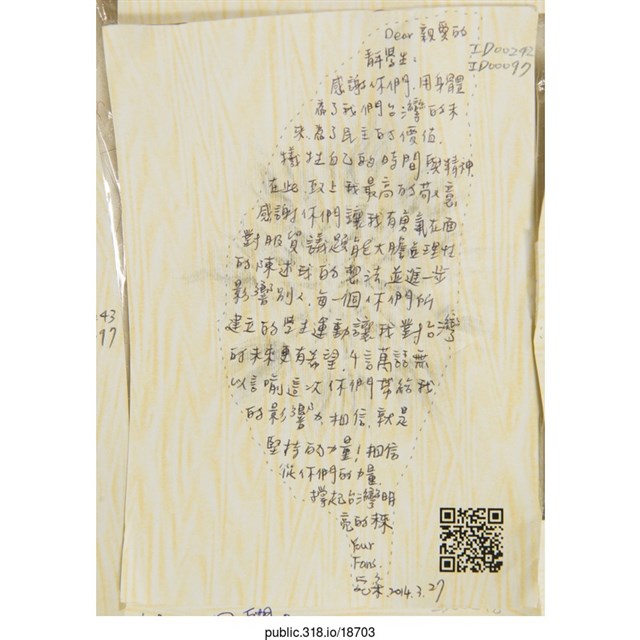 Dear 親愛的
ID00292
ID00097
靜學生:
感謝你們,用身體
為了我們台灣的未
來,為了民主的價值,
犧牲自己的時間與精神
在此致上我最高的敬意
感謝你們讓我有勇氣在面
對服貿議題能大膽並理性
的陳述我的想法,並進一步
影響別人,每一個你們所
建立的學生運動讓我對台灣
的未來更有希望,千言萬語無
以言喻這次你們帶給我
的影響力,相信,就是
堅持的力量!相信
從你們的力量,
撐起台灣明
亮的
Your
Fans.
2014.3.27
43
97
public.318.io/18703